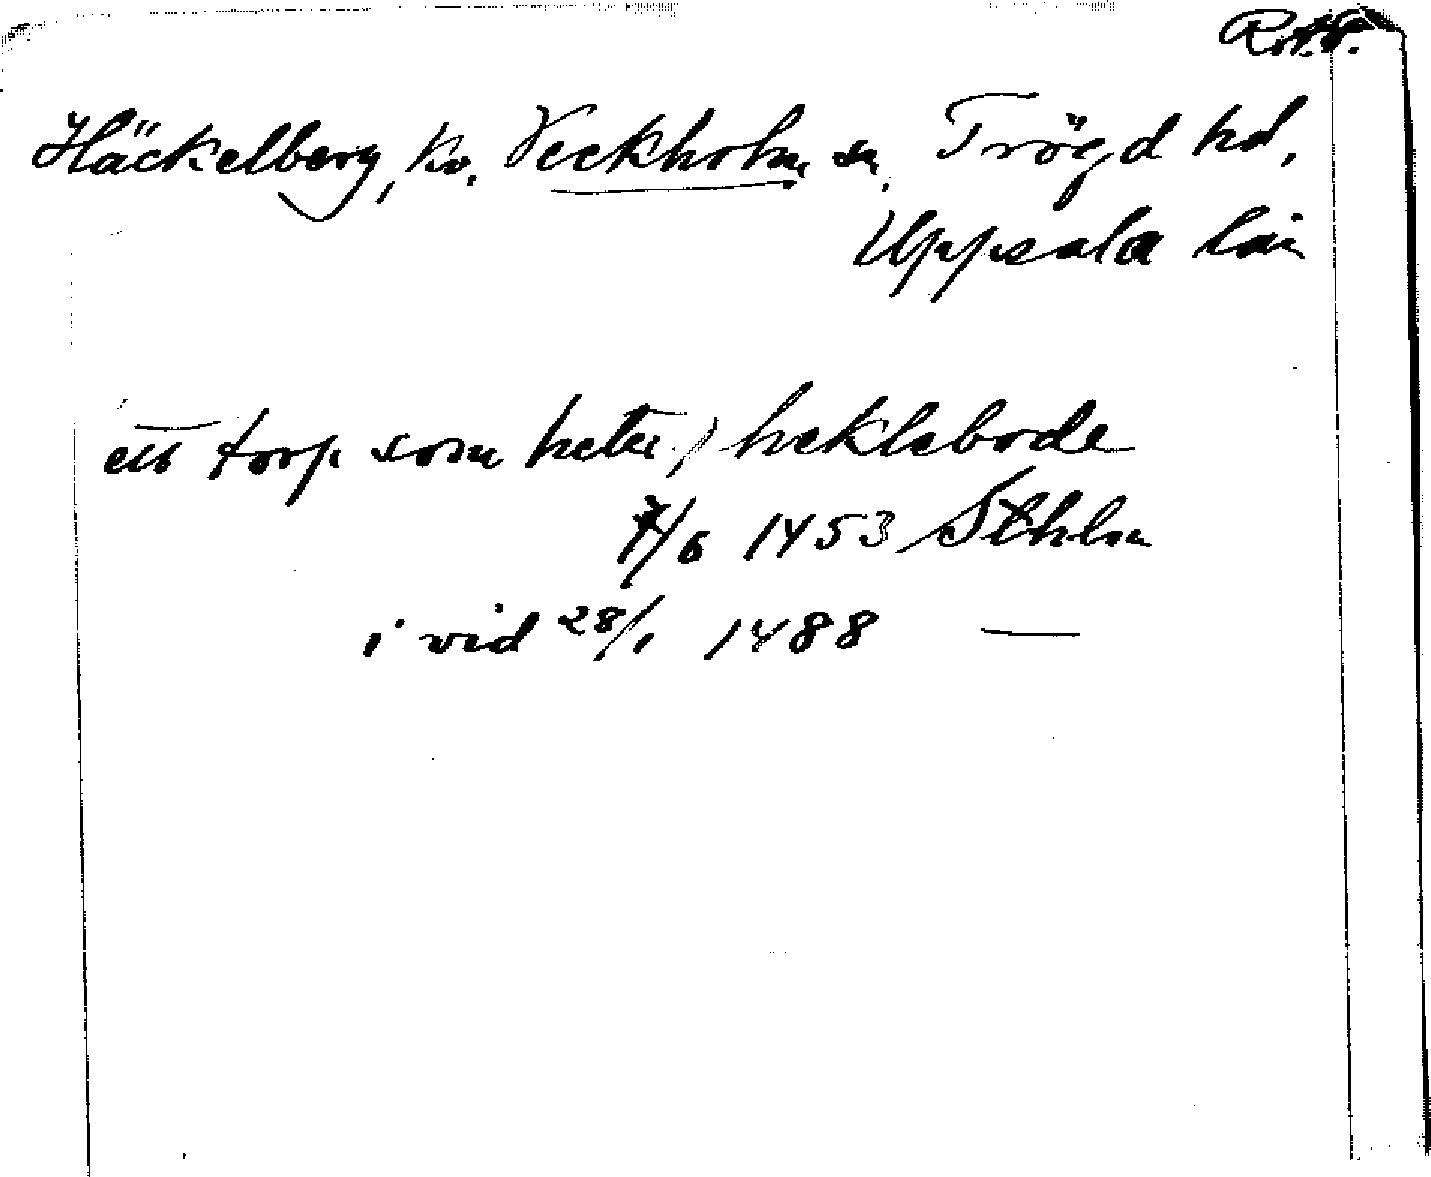 Häckelberg, kv. Veckholm sn. Trögd hd,
Uppsala län
ett torp som heter heklebode
7/6 1453 Sthlm
i vid 28/1 1488 —